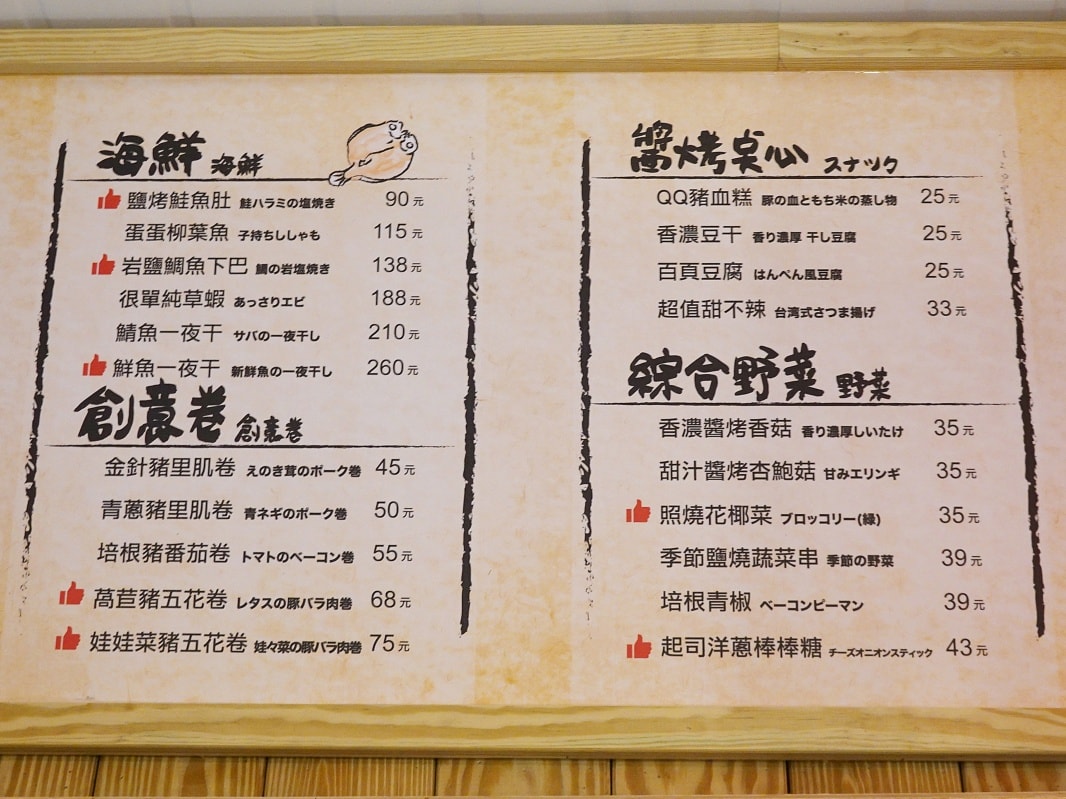 海鮮 海鮮
鹽烤鮭魚肚 鮭ハラミの塩焼き 90元
蛋蛋柳葉魚 子持ちししゃも 115元
岩鹽鯛魚下巴 鯛の岩塩焼き 138元
很單純草蝦 あっさりエビ 188元
鯖魚一夜干 サバの一夜干し 210元
鮮魚一夜干 新鮮魚の一夜干し 260元
創意卷 創意巻
金針豬里肌卷 えのき茸のポーク巻 45元
青蔥豬里肌卷 青ネギのポーク巻 50元
培根豬番茄卷 トマトのベーコン巻 55元
萵苣豬五花卷 レタスの豚バラ肉巻 68元
娃娃菜豬五花卷 娃々菜の豚バラ肉巻 75元
醬烤点心 スナック
QQ豬血糕 豚の血ともち米の蒸し物 25元
香濃豆干 香り濃厚 干し豆腐 25元
百頁豆腐 はんぺん風豆腐 25元
超值甜不辣 台湾式さつま揚げ 33元
綜合野菜 野菜
香濃醬烤香菇 香り濃厚しいたけ 35元
甜汁醬烤杏鮑菇 甘みエリンギ 35元
照燒花椰菜 ブロッコリー(緑) 35元
季節鹽燒蔬菜串 季節の野菜 39元
培根青椒 ベーコンピーマン 39元
起司洋蔥棒棒糖 チーズオニオンスティック 43元